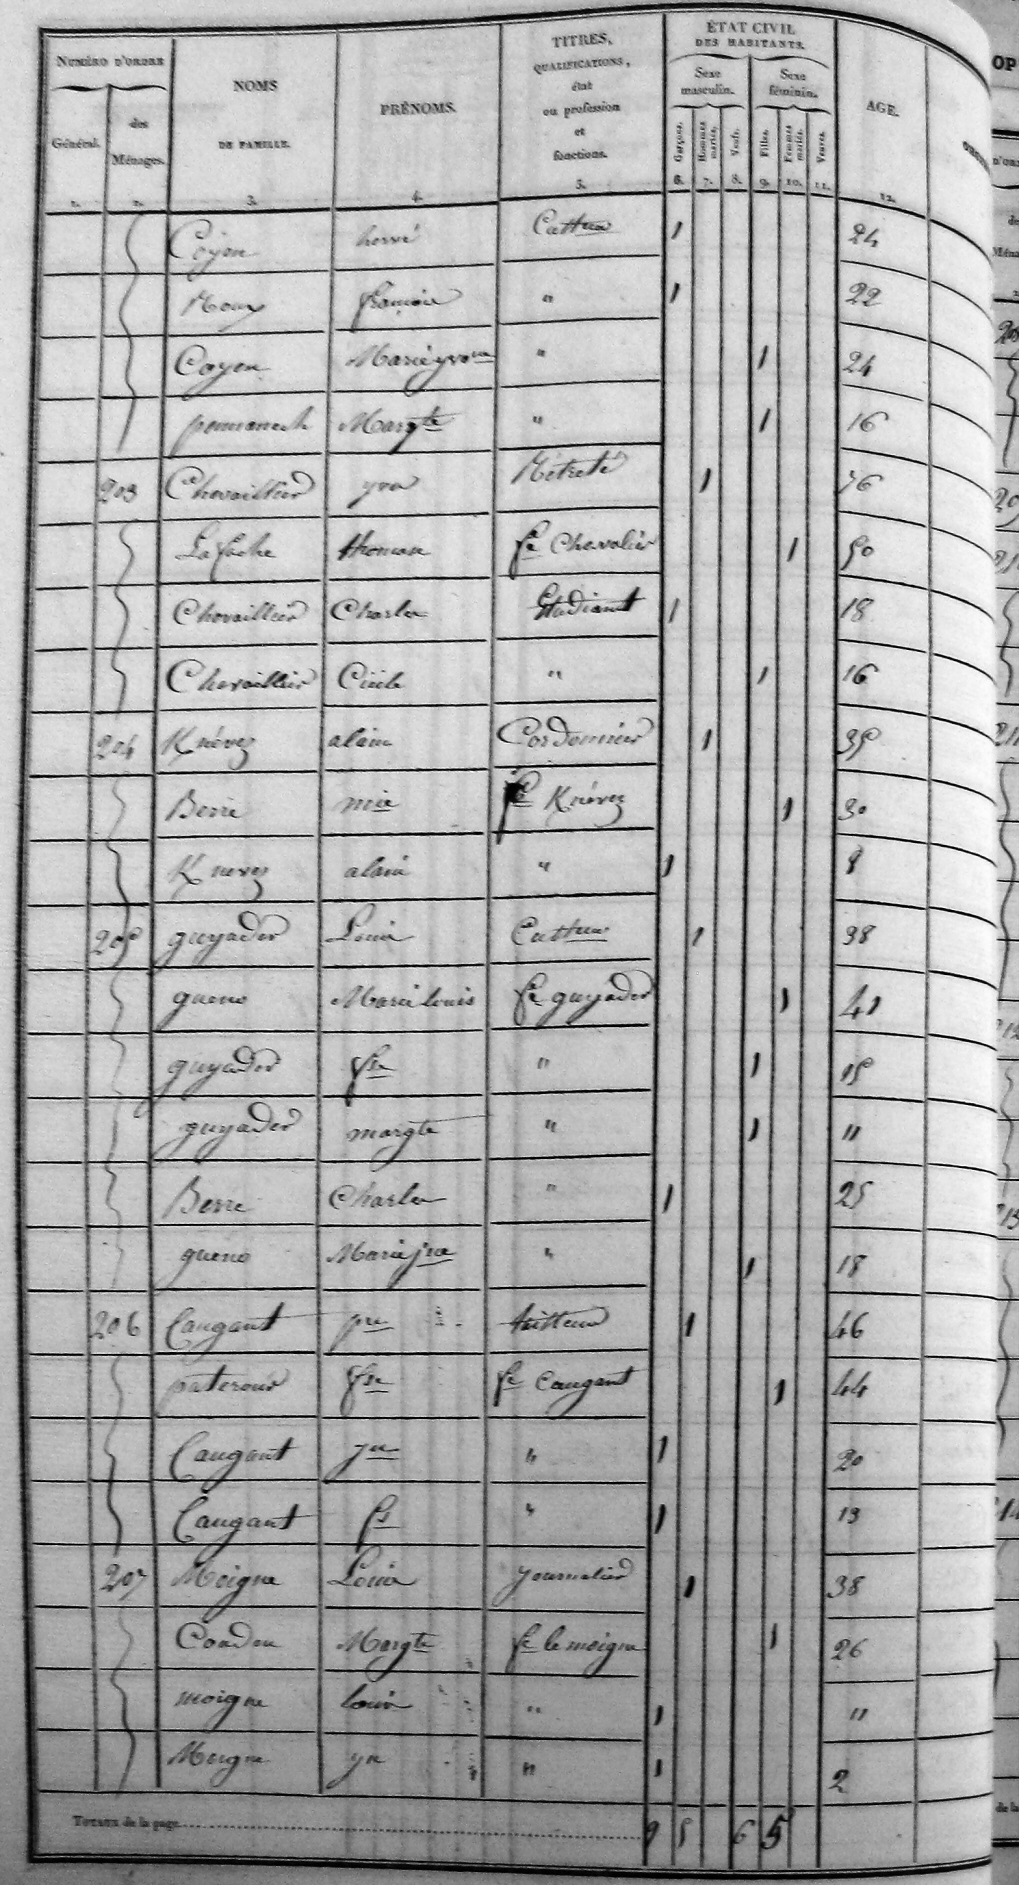 NUMÉRO D'ORDRE
Général.
des Ménages.
NOMS
DE FAMILLE.
PRÉNOMS.
TITRES,
QUALIFICATIONS,
état
ou profession
et
fonctions.
ÉTAT CIVIL
DES HABITANTS.
Sexe masculin.
Sexe féminin.
Garçons.
Hommes mariés.
Veufs.
Filles.
Femmes mariées.
Veuves.
AGE.
1. 2. 3. 4. 5. 6. 7. 8. 9. 10. 11. 12.
Coyen hervé Cultteur 1 24
Roux françois " 1 22
Coyen Marie yvonne " 1 24
penmanech Margte " 1 16
203 Chevaillier yves Rétreté 1 76
La fache thomase fe Chevalier 1 50
Chevaillier Charles Etudiant 1 18
Chevaillier Cicile " 1 16
204 Knévez alain Cordonnier 1 35
Berre mie fe Knévez 1 30
Knevez alain " 1 8
205 guyader Louis Cultteur 1 38
gueno Marie louis fe guyader 1 41
guyader fse " 1 15
guyader margte " 1 11
Berre Charles " 1 25
gueno Marie jne " 1 18
206 Caugant pre 1 46
paterour fse fe Caugant 1 44
Caugant yn " 1 20
Caugant fs " 1 13
207 Moigne Louis journalier 1 38
Coadou Margte fe le moigne 1 26
moigne louis " 1 11
Moigne yn " 1 2
Totaux de la page 9 5 6 5